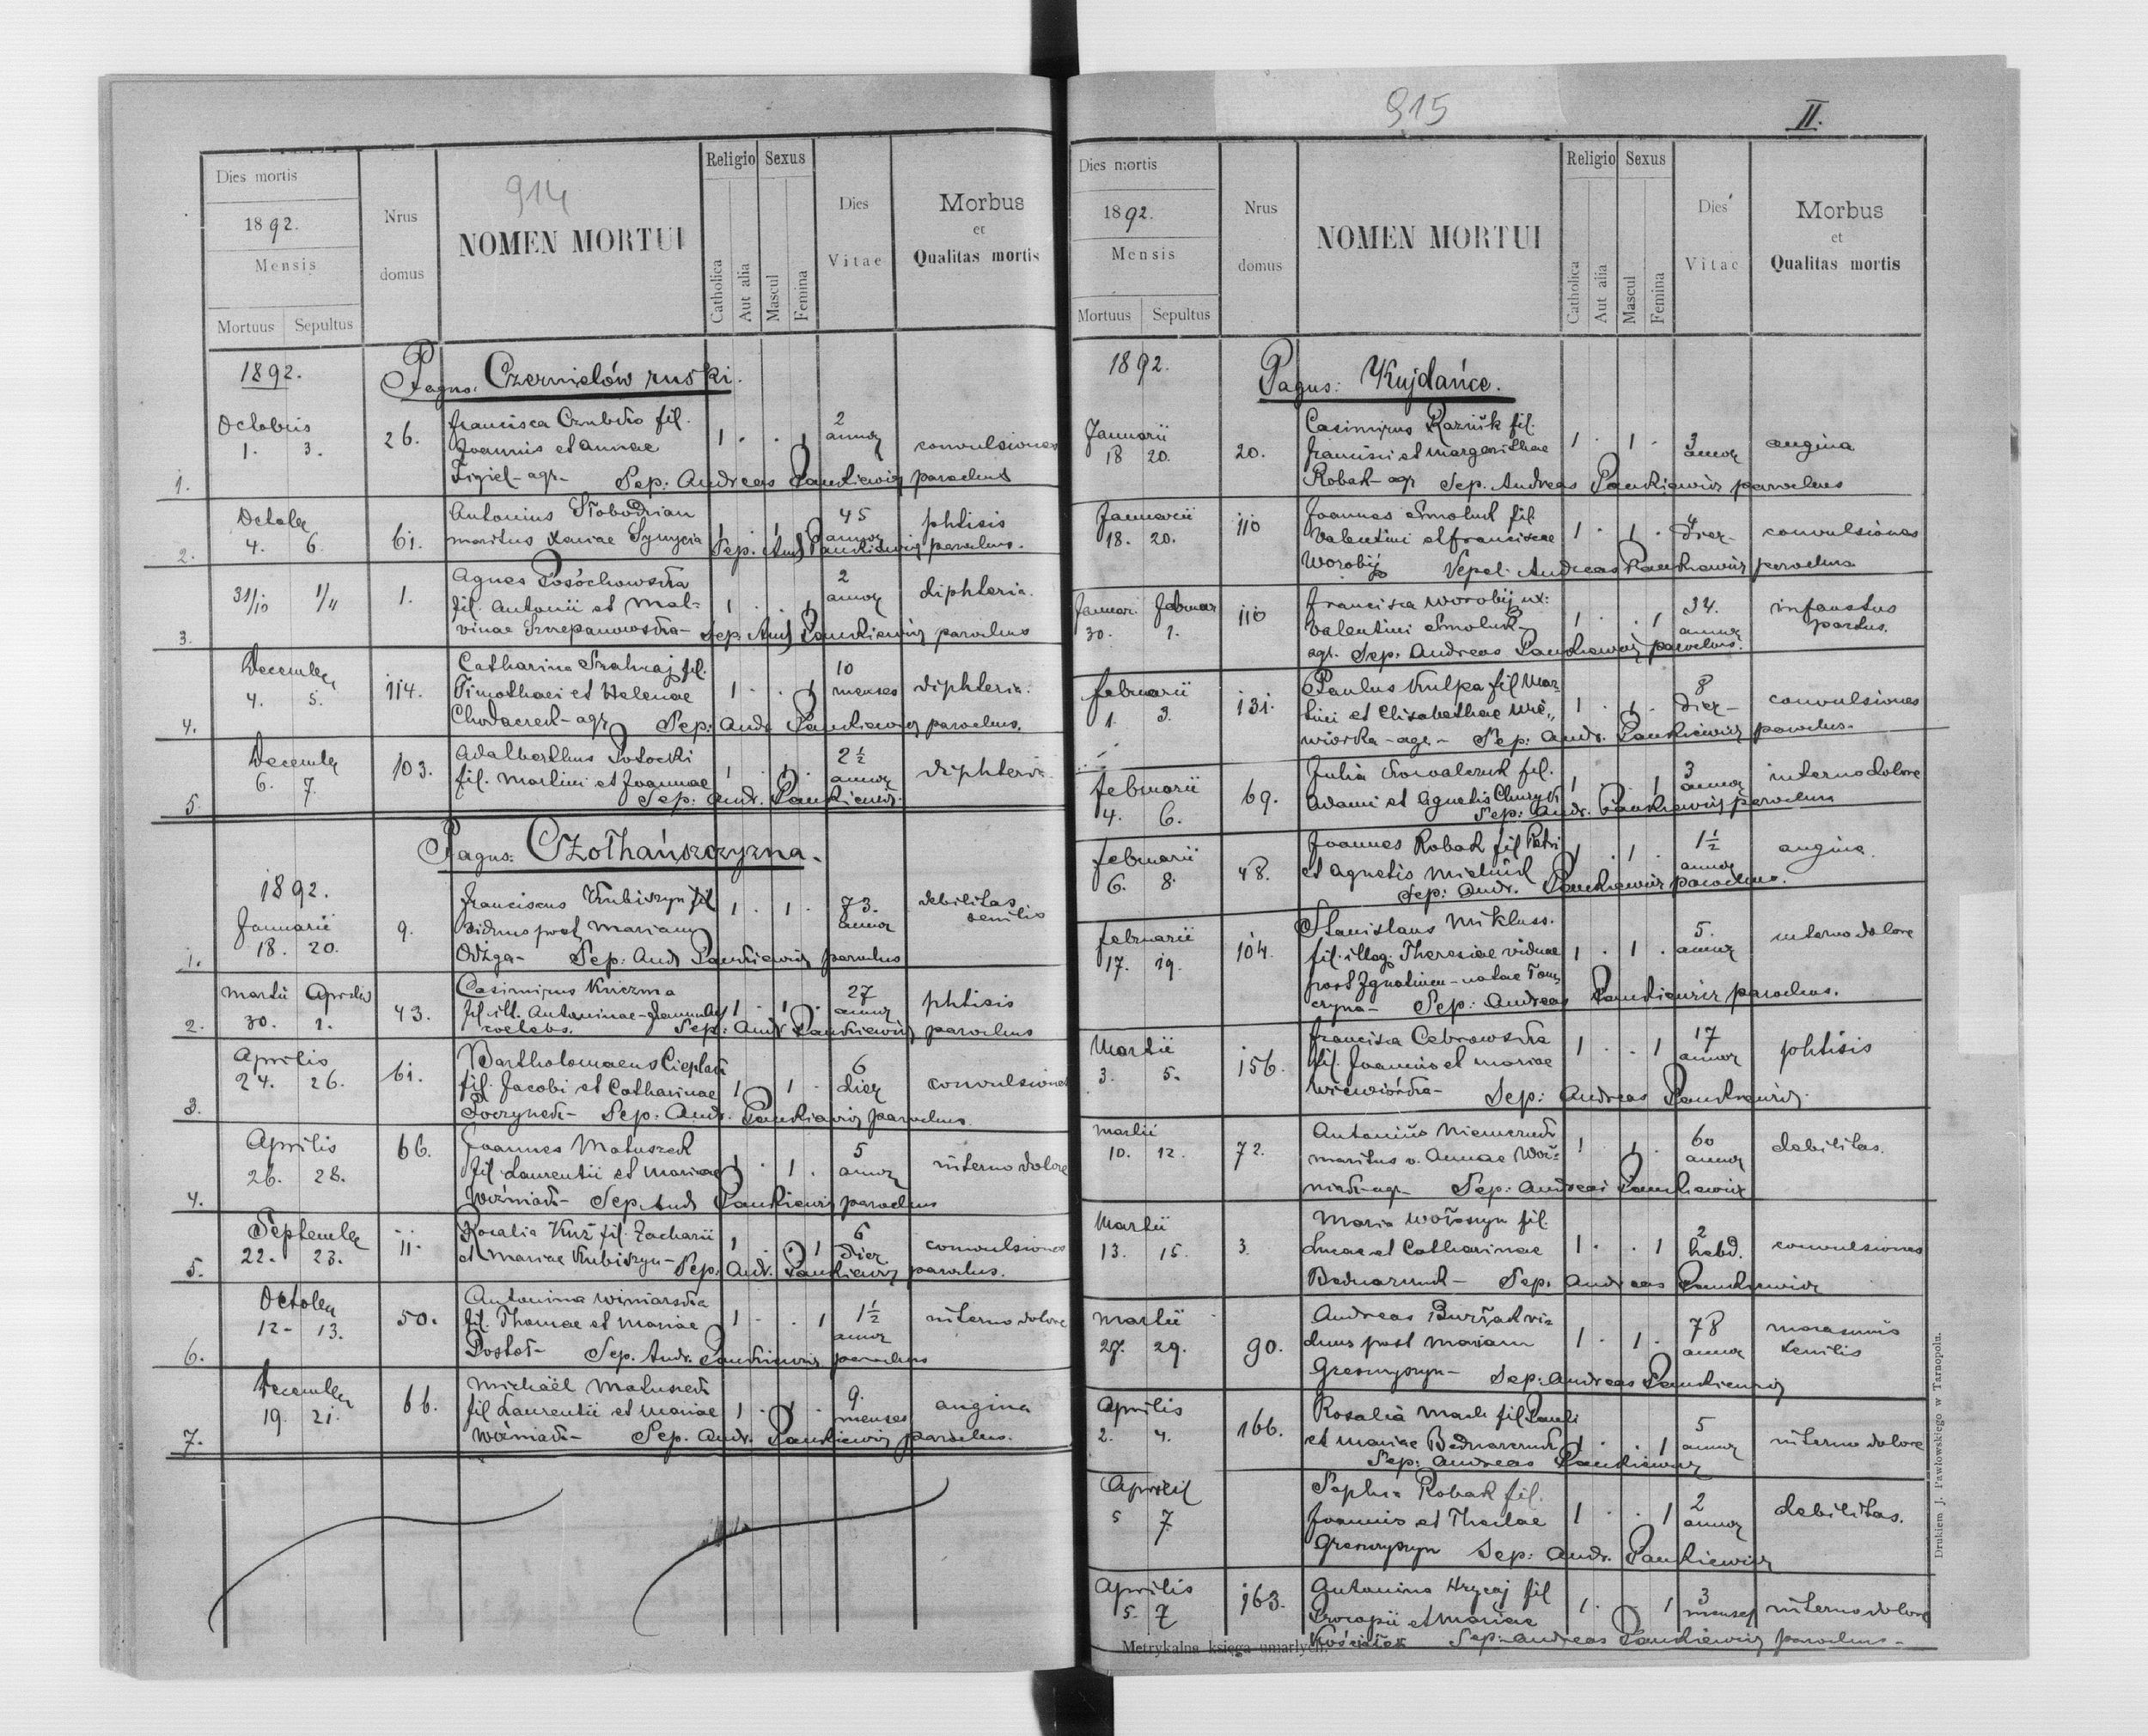 914
Dies mortis
1892.
Mensis
Mortuus Sepultus
Nrus domus
NOMEN MORTUI
Religio
Catholica
Aut alia
Sexus
Mascul
Femina
Dies Vitae
Morbus
et
Qualitas mortis
1892. Pagus: Czernielów ruski.
Octobris
1. 3. 26.
fil.
Joannis et Annae
agr- Sep: Andreas Pankiewicz parochus
2 annor convulsiones
1.
October
4. 6. 61.
Antonius Słobodrian
maritus Xeniae
Sep. And Pankiewicz parochus.
45 annor phtisis
2.
31/10 1/11 1.
Agnes
fil. Antonii et Mal=
vinae Szczepanowska- Sep. And Pankiewicz parochus
2 annor diphteria.
3.
December
4. 5. 114.
Catharina fil.
Timothaei et Helenae
agr Sep: Andr Pankiewicz parochus.
10 menses diphteria.
4.
December
6. 7. 103.
Adalberthus Potocki
fil. Martini et Joannae
Sep: Andr. Pankiewicz.
2½ annor diphteria
5.
Pagus: Czołhańszczyzna.
1892.
Januarii
18. 20. 9.
Franciscus Kubiszyn
viduus post Mariam
Odżga- Sep: Andr Pankiewicz parochus
73. annor debilitas
senilis
1.
Martii Aprilis
30. 1. 43.
Casimirus Kuczma
fil. ill. Antoninae
coelebs. Sep: Andr Pankiewicz parochus
27 annor phtisis
2.
Aprilis
24. 26. 61.
Bartholomaeus Cieplak
fil. Jacobi et Catharinae
Sep: Andr. Pankiewicz parochus.
6 dier convulsiones
3.
Aprilis
26. 28. 66.
Joannes Matuszek
fil Laurentii et Mariae
Woźniak- Sep. And Pankiewicz parochus
5 annor interno dolore
4.
September
22. 23. 11.
Rosalia fil. Zacharii
et Mariae Kubiszyn- Sep. Andr. Pankiewicz parochus.
6 dier convulsiones
5.
October
12- 13. 50.
Antonina Winiarska
fil. Thomae et Mariae
Postoł- Sep. Andr. Pankiewicz parochus
1½ annor interno dolore
6.
December
19. 21. 66.
Michaël Matuszek
fil Laurentii et Mariae
Woźniak- Sep. Andr. Pankiewicz parochus.
9. menses angina
7.
915
II.
Dies mortis
1892.
Mensis
Mortuus Sepultus
Nrus domus
NOMEN MORTUI
Religio
Catholica
Aut alia
Sexus
Mascul
Femina
Dies Vitae
Morbus
et
Qualitas mortis
1892. Pagus: Kujdańce.
Januarii
18 20. 20.
Casimirus fil.
Francisci et Margarithae
Robak- agr Sep. Andreas Pankiewicz parochus
3 annor angina
Januarii
18. 20. 110
Joannes Smoluk fil
Valentini et Franciscae
Worobij Sepel. Andreas Pankiewicz parochus
4 dier- convulsiones
Januar. Februar
30. 1. 110
Francisca Worobij ux:
Valentini Smoluk-
agr. Sep. Andreas Pankiewicz parochus.
34. annor infaustus
partus.
Februarii
1. 3. 131.
Paulus Kulpa fil Mar
tini et Elisabethae Wie„
wiórka- agr- Sep: Andr. Pankiewicz parochus-
8 dier- convulsiones
Februarii
4. 6. 69.
Julia Kowalczuk fil.
Adami et Agnetis
Sep: Andr. Pankiewicz parochus
3 annor interno dolore
Februarii
6. 8. 48.
Joannes Robak fil Petri
et Agnetis
Sep: Andr. Pankiewicz parochus.
1½ annor angina
Februarii
17. 19. 104.
Stanislaus Mikluss.
fil. illeg. Theresiae viduae
post Ignatium- natae Tom
czyna- Sep: Andreas Pankiewicz parochus.
5. annor interno dolore
Martii
3. 5. 156.
Francisca Cebrowska
fil. Joannis et Mariae
Wiewiórka- Sep: Andreas Pankiewicz.
17 annor phtisis
Martii
10. 12. 72.
Antonius Niemczuk
maritus v. Annae Woź=
niak-agr- Sep: Andreas Pankiewicz
60 annor debilitas.
Martii
13. 15. 3.
Maria Wołoszyn fil.
Lucae et Catharinae
Bednarczuk- Sep. Andreas Pankiewicz
2 hebd. convulsiones
Martii
27. 29. 90.
Andreas vi=
duus post Mariam
Sep: Andreas Pankiewicz
78 annor marasmus
senilis
Aprilis
2. 4. 166.
Rosalia fil Pauli
et Mariae Bednarczuk
Sep: Andreas Pankiewicz
5 annor interno dolore
April
5 7.
Sophia Robak fil.
Joannis et Theclae
Sep: Andr. Pankiewicz
2 annor debilitas.
Aprilis
5. 7 163.
Antonina Hrycaj fil
Procopii et Mariae
Sep: Andreas Pankiewicz parochus-
3 menses interno dolore
Metrykalna księga umarłych.
Drukiem J. Pawłowskiego w Tarnopolu.